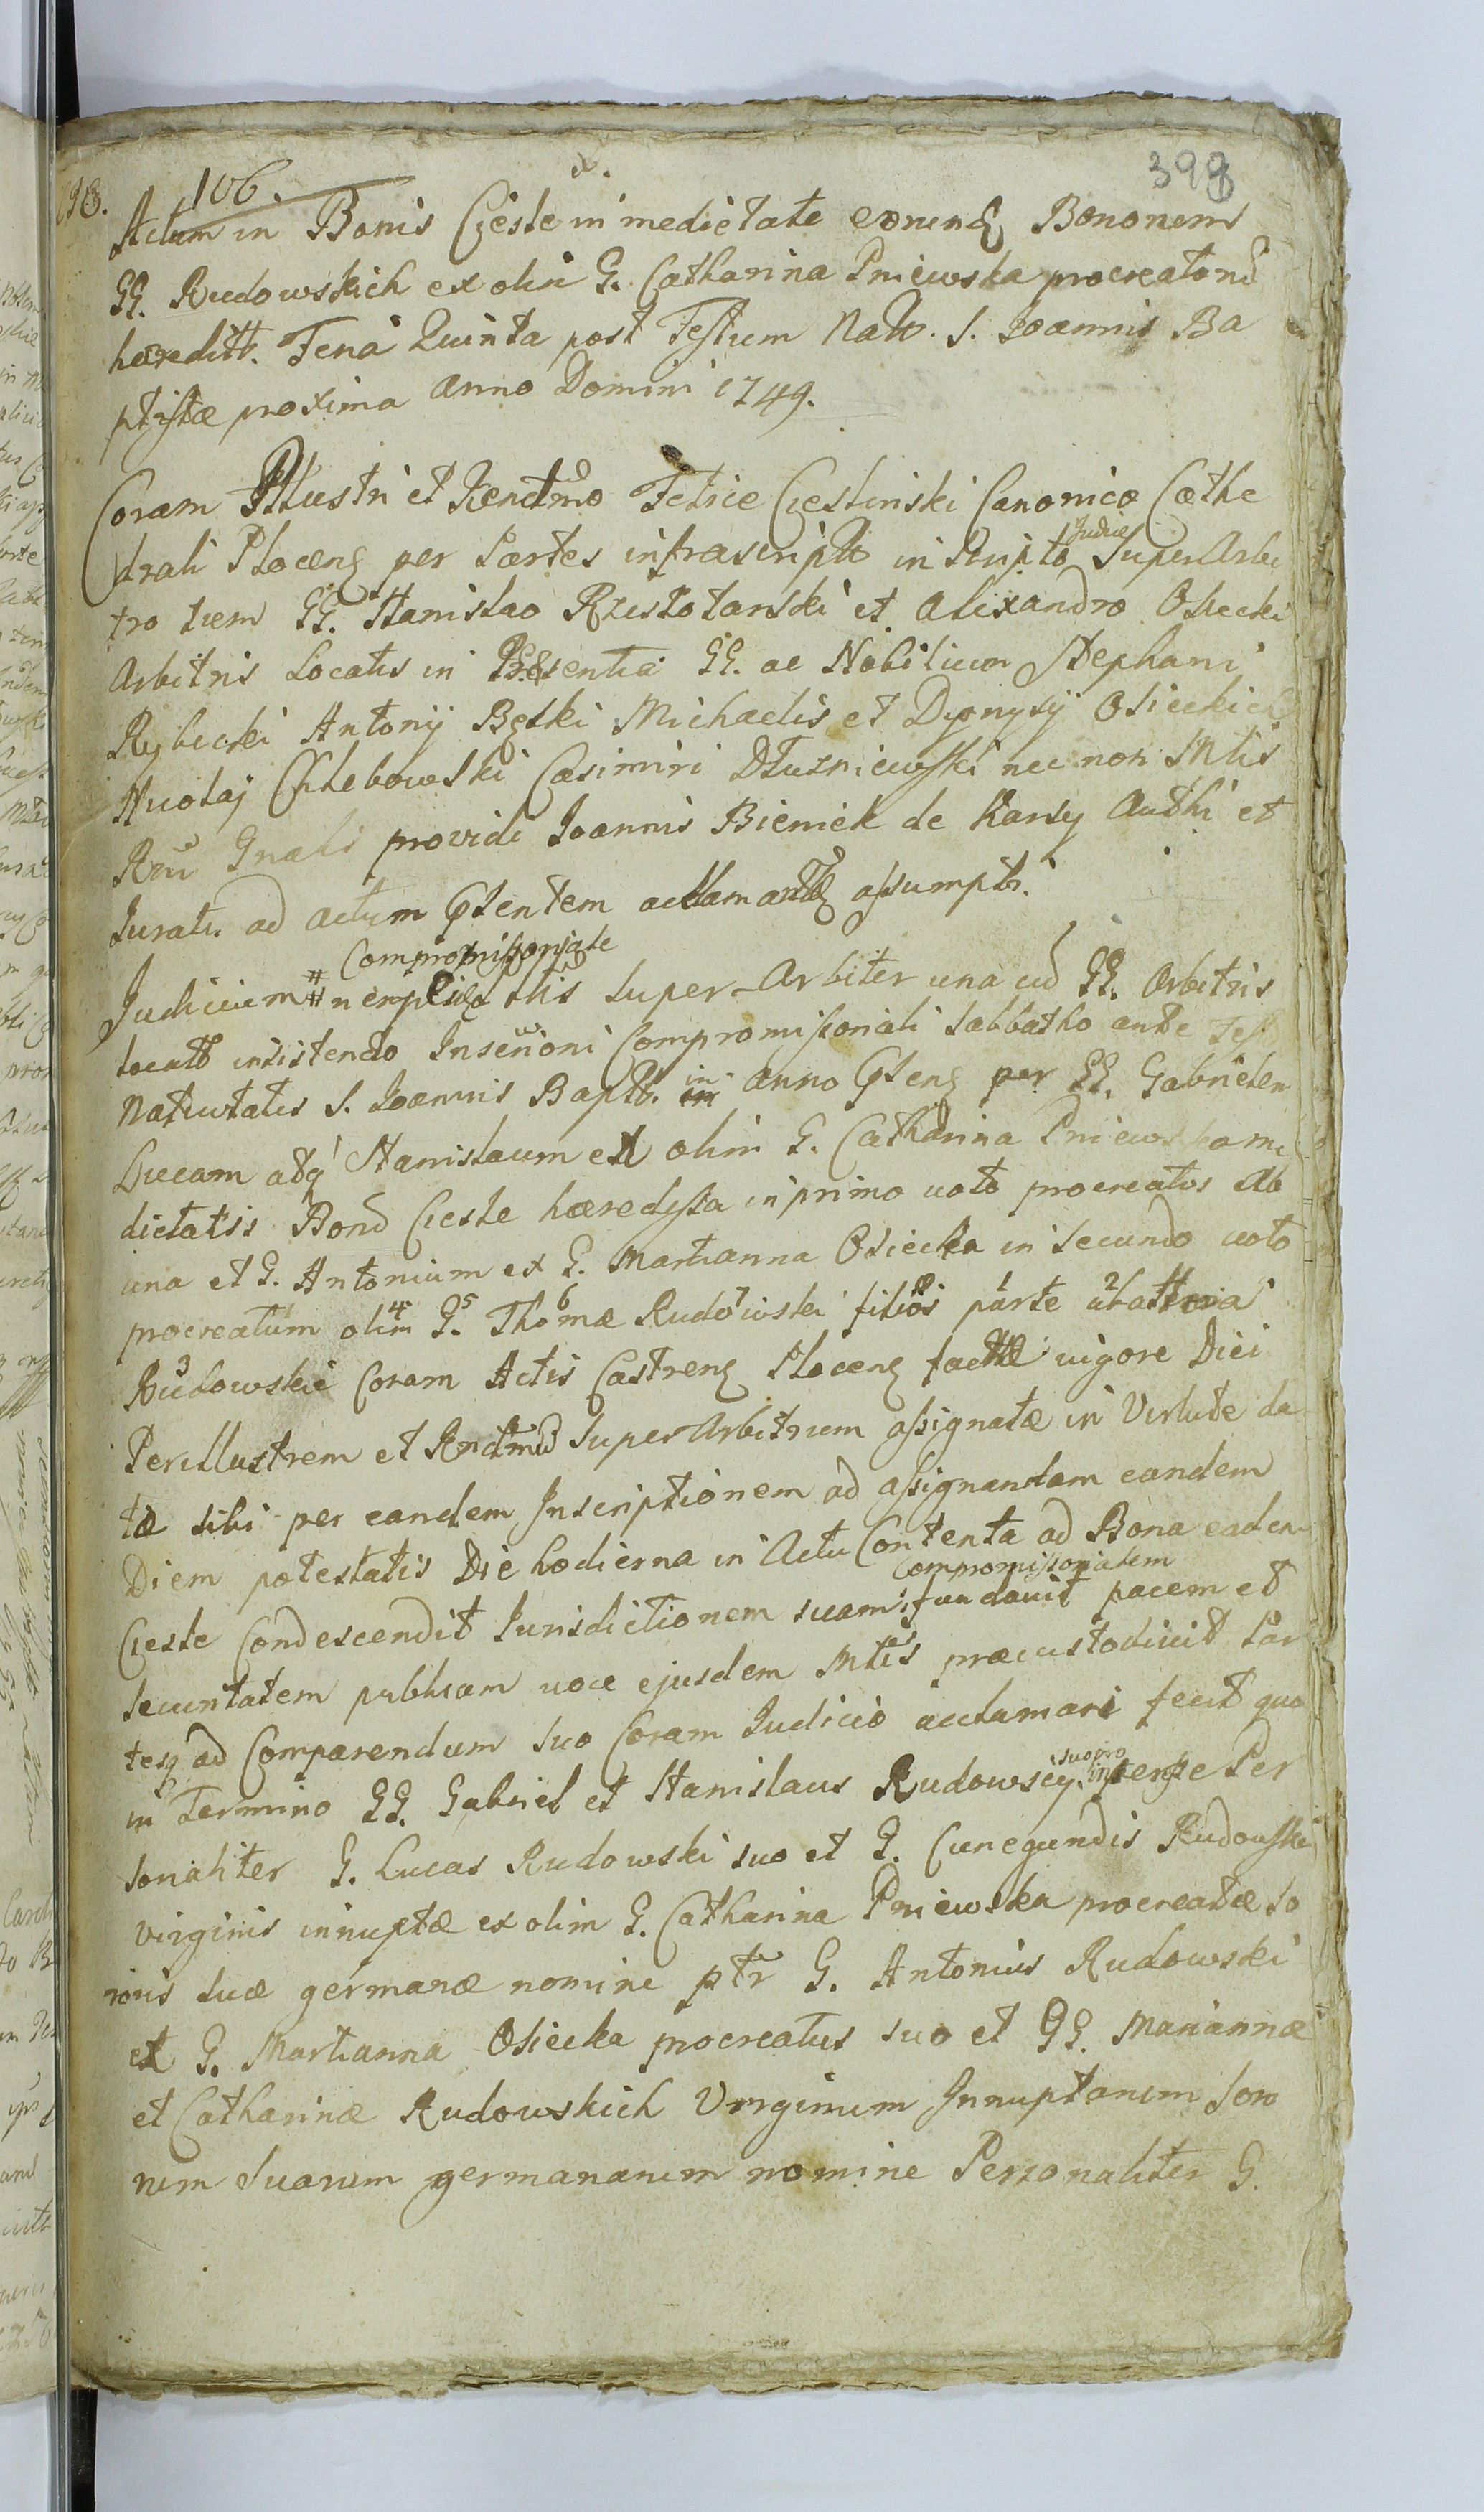 398
106.
Actum in Bonis Cieśle in medietate eorund Bonorum
GG. Rudowskich ex olim G. Catharina Pniewska procreatorũ
hæreditt. Feria Quinta post Festum Natt. S. Joannis Ba
ptistæ proxima Anno Domini 1749.
Coram Illustri et Rendtmo Petric Ciesliński Canonico Cathe
drali Plocens per Partes infrascriptt in Scripto Judice SuperArbi
tro trem GG. Stanislao Rzeszotarski et Alexandro Osiecki
Arbitris Locatis in Præsentia GG. ac Nobilium Stephani
Rybicki Antonij Bęski Michaelis et Dyonysij Osieckich
Nicolaj Chlebowski Casimiri Dłużniewski nec non Mtis
Rñi Gnalis providi Joannis Bieniek de Karsy Authi et
Juratis ad actum Pntentem acclamandũ assumptt.
Judicium # Compromissoriale nempe Illis Super-Arbiter una cũ GG. Arbitris
locatt insistendo Inscrioni Compromissoriali Sabbatho ante Fest
Nativitatis S. Joannis Baptt. in anno Pntens per GG. Gabrielem
Lucam atq Stanislaum ex olim G. Catharina Pniewska me
dietatis Bonõ Cieśle hæredissa in primo voto procreatos ab
una et G. Antonium ex G. Marianna Osiecka in Secundo voto
procreatum olim 4 G. 5 Thomæ 6 Rudowski 7 filios 8 parte 1 ab altera 2
Rudowskie 3 Coram Actis Castrens Plocens factæ vigore Diei
Perillustrem et Rndtmũ SuperArbitrum assignatæ in Virtute da
tæ sibi per eandem Inscriptionem ad assignandam eandem
Diem potestatis Die hodierna in Actu Contenta ad Bona eadem
Cieśle Condescendit Jurisdictionem suam Compromissorialem fundavit pacem et
securitatem publicam voce ejusdem Mtis præcustodivit Par
tesq ad Comparendum suo Coram Judicio acclamari fecit quo
in Termino GG. Gabriel et Stanislaus Rudowscy suo pro interesse Per
sonaliter G. Lucas Rudowski suo et G. Cunegundis Rudowska
Virginis innuptæ ex olim G. Catharina Pniewska procreatæ So
roris suæ germanæ nomine ptr G. Antonius Rudowski
ex G. Marianna Osiecka procreatus suo et GG. Mariannæ
et Catharinæ Rudowskich Virginum Innuptarum Soro
rum suarum germanarum nomine Personaliter G.